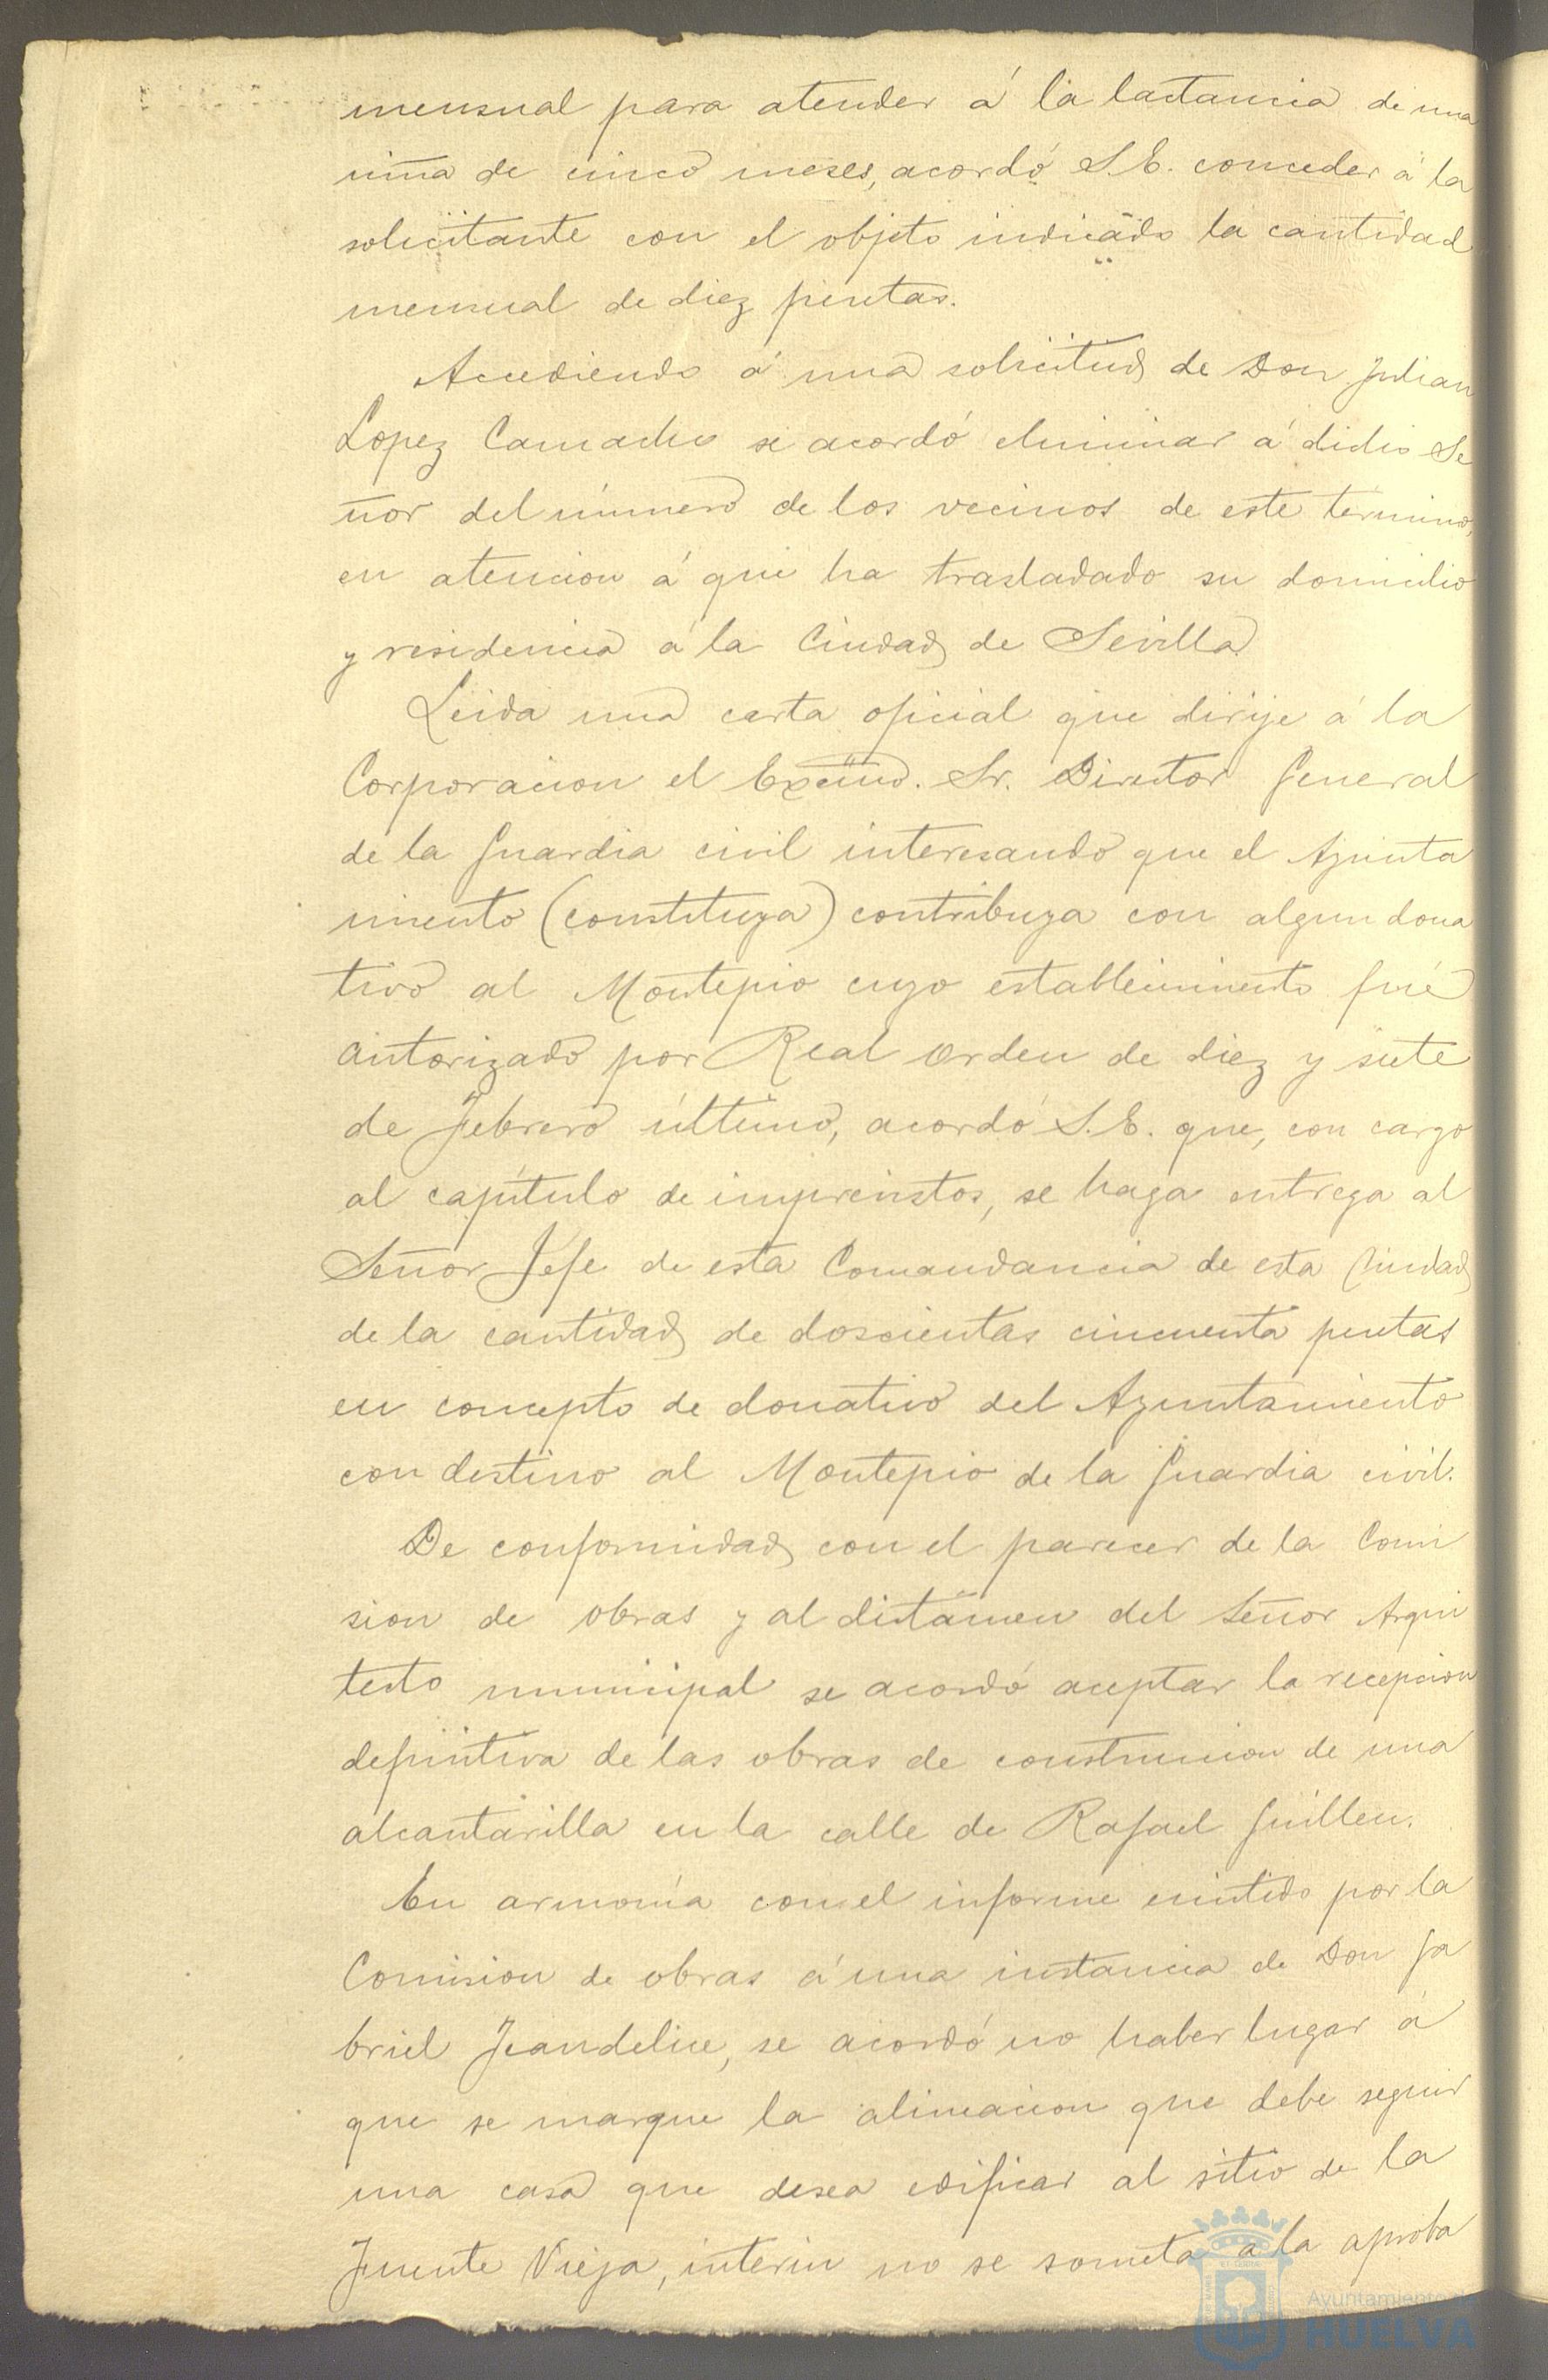 mensual para atender á la lactancia de una
niña de cinco meses, acordó S.E. conceder á la
solicitante con el objeto indicado la cantidad
mensual de diez pesetas.
Accediendo á una solicitud de Don Julian
Lopez Camacho se acordó eliminar á dicho Se
ñor del número de los vecinos de este término,
en atencion á que ha trasladado su domicilio
y residencia á la Ciudad de Sevilla
Leida una carta oficial que dirije á la
Corporacion el Excmo. Sr. Director General
de la Guardia civil interesando que el Ayunta
miento (constituya) contribuya con algun dona
tivo al Montepio cuyo establecimiento fué
autorizado por Real orden de diez y siete
de Febrero último, acordó S.E. que, con cargo
al capítulo de imprevistos, se haga entrega al
Señor Jefe de esta Comandancia de esta Ciudad
de la cantidad de doscientas cincuenta pesetas
en concepto de donativo del Ayuntamiento
con destino al Montepio de la Guardia civil.
De conformidad con el parecer de la Comi
sion de obras y al dictámen del Señor Arqui
tecto municipal se acordó aceptar la recepcion
definitiva de las obras de construccion de una
alcantarilla en la calle de Rafael Guillen.
En armonía con el informe emitido por la
Comision de obras á una instancia de Don Ga
briel Jeandelice, se acordó no haber lugar á
que se marque la alineacion que debe seguir
una casa que desea edificar al sitio de la
Fuente Vieja, interin no se someta a la aproba
Ayuntamiento de
HUELVA